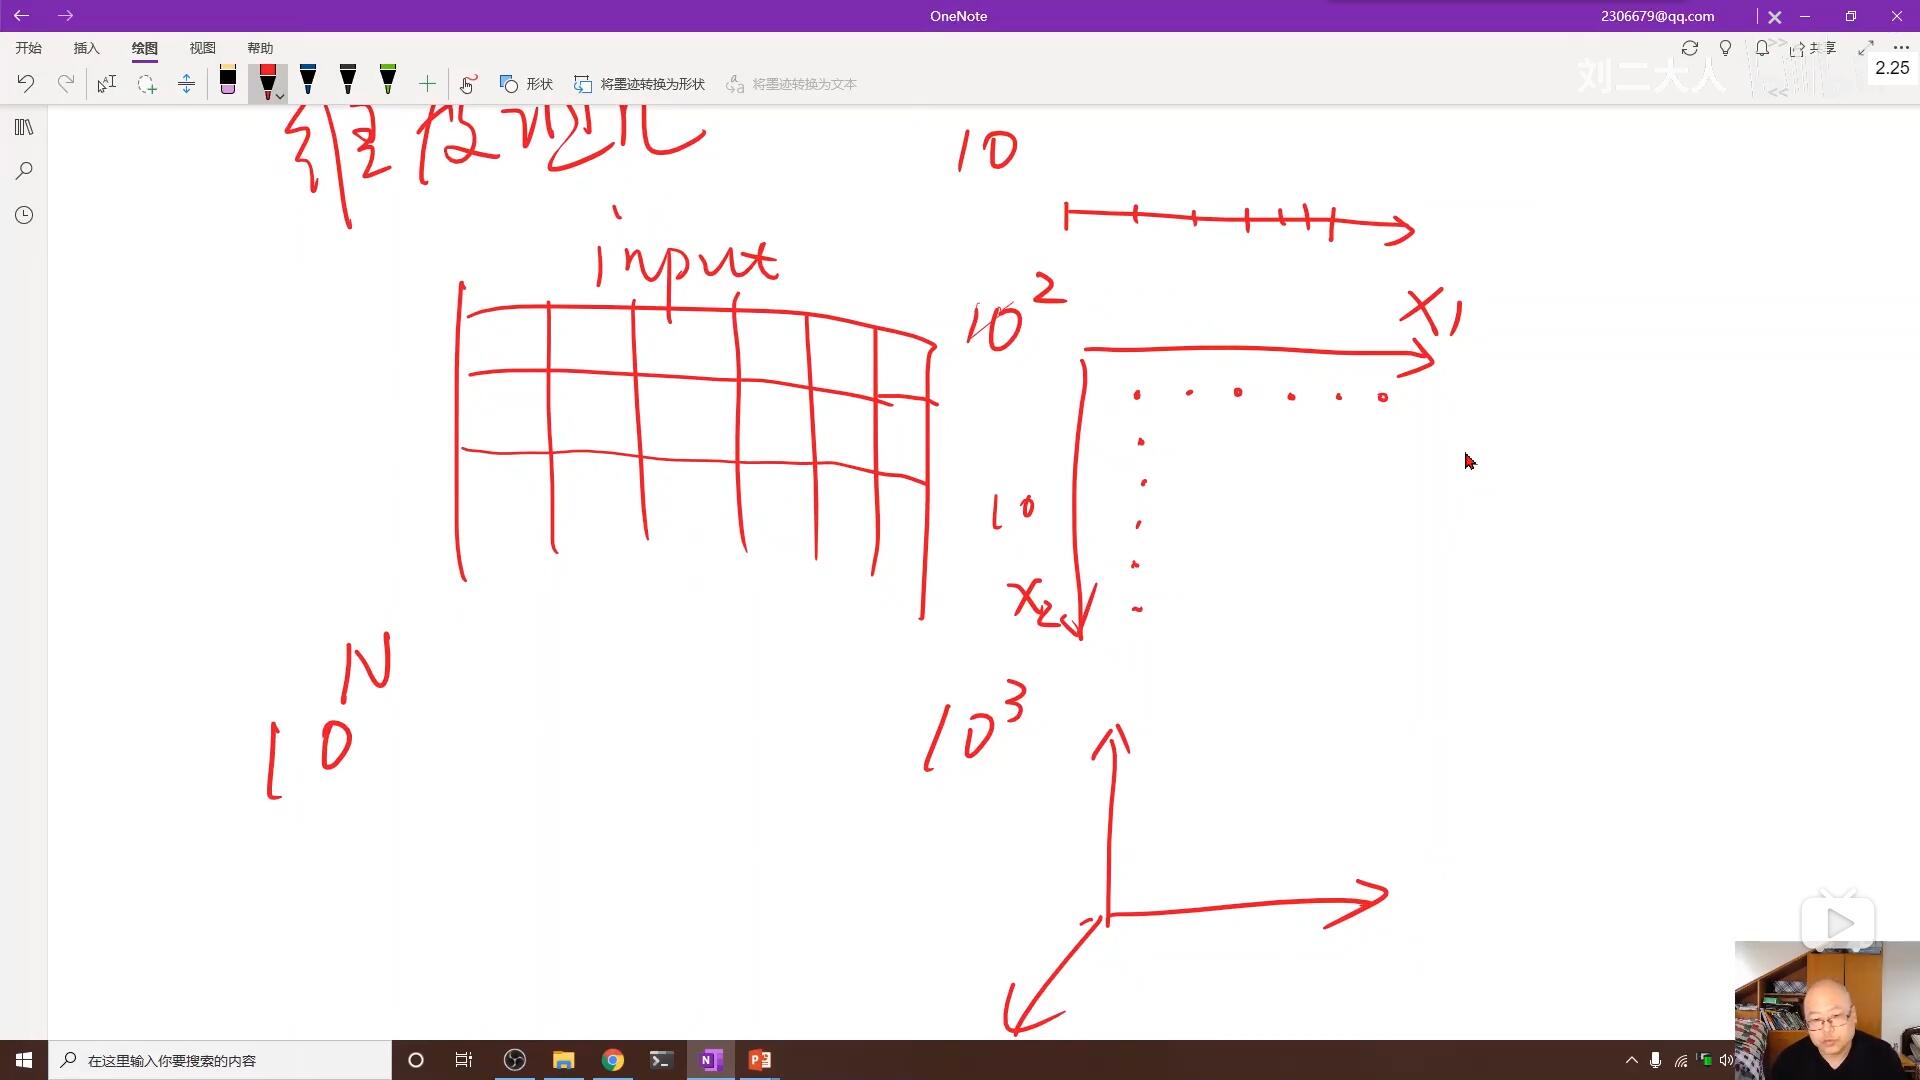 OneNote
2306679@qq.com
开始 插入 绘图 视图 帮助
共享
形状 将墨迹转换为形状 将墨迹转换为文本
刘二大人
2.25
10
input
10²
X1
10
X2
10^N
10³
在这里输入你要搜索的内容